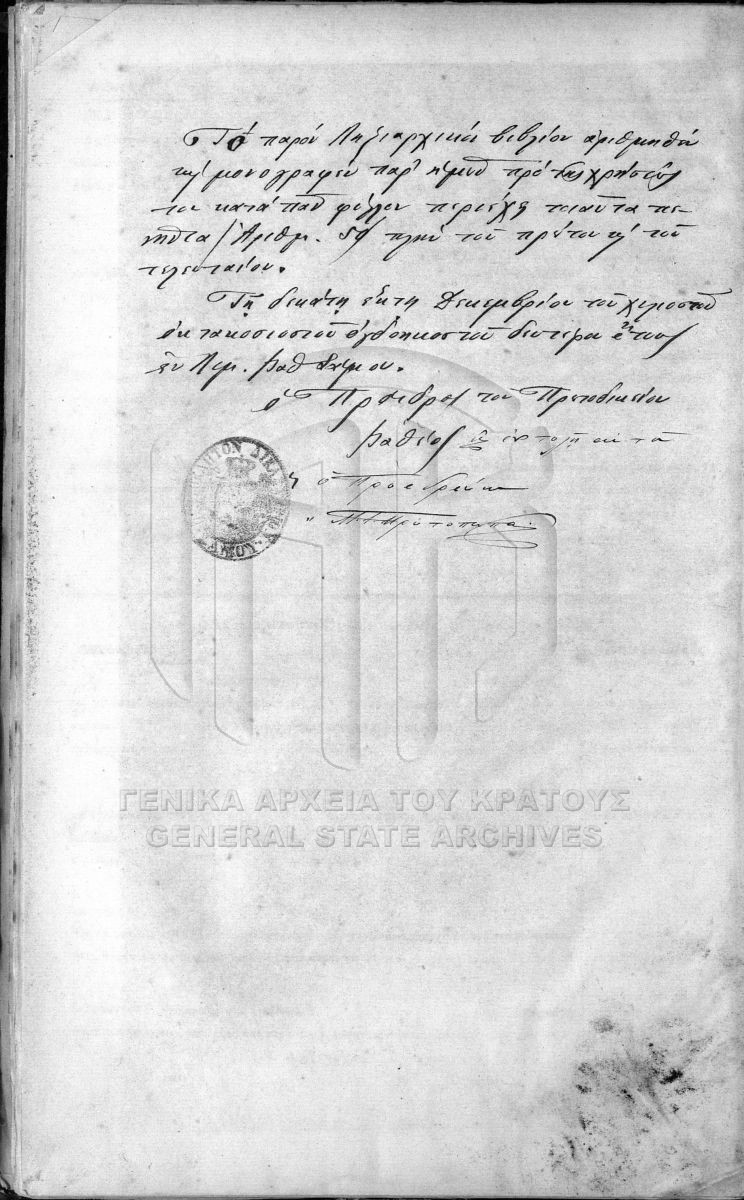 Τό παρόν Ληξιαρχικόν βιβλίον ἀριθμηθέν
καί μονογραφέν παρ' ἡμῶν πρό τῆς χρήσεώς
του κατά πᾶν φύλλον περιέχει τοιαῦτα πε-
νῆντα /Ἀριθμ. 50/ πλήν τοῦ πρώτου καί τοῦ
τελευταίου.
Τῇ δεκάτῃ ἕκτῃ Δεκεμβρίου τοῦ χιλιοστοῦ
ὀκτακοσιοστοῦ ὀγδοηκοστοῦ δευτέρου ἔτους
ἐν Λιμ. Βαθ Σάμου.
ὁ Πρόεδρος τοῦ Πρωτοδικείου
Βαθέος ἐντολῇ αὐτοῦ
ὁ Προεδρεύων
Πρωτοπαπα
ΓΕΝΙΚΑ ΑΡΧΕΙΑ ΤΟΥ ΚΡΑΤΟΥΣ
GENERAL STATE ARCHIVES